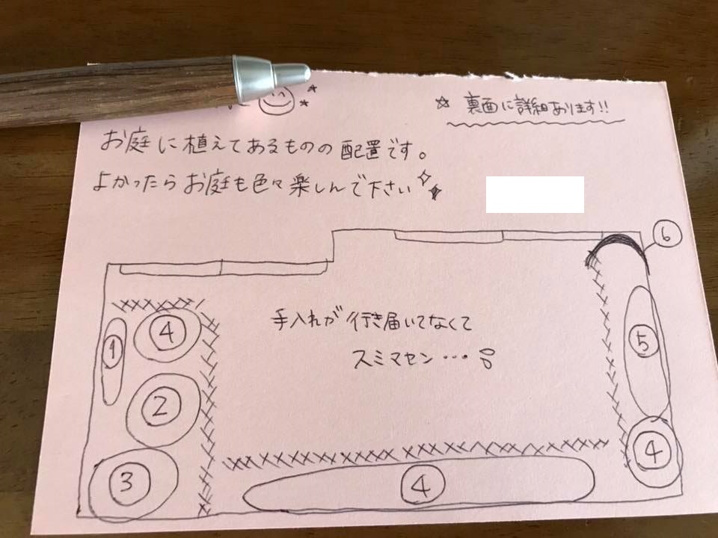 ☆ 裏面に詳細あります!!
お庭に植えてあるものの配置です。
よかったらお庭も色々楽しんで下さい
⑥
手入れが行き届いてなくて
スミマセン…
①
④
②
③
④
⑤
④